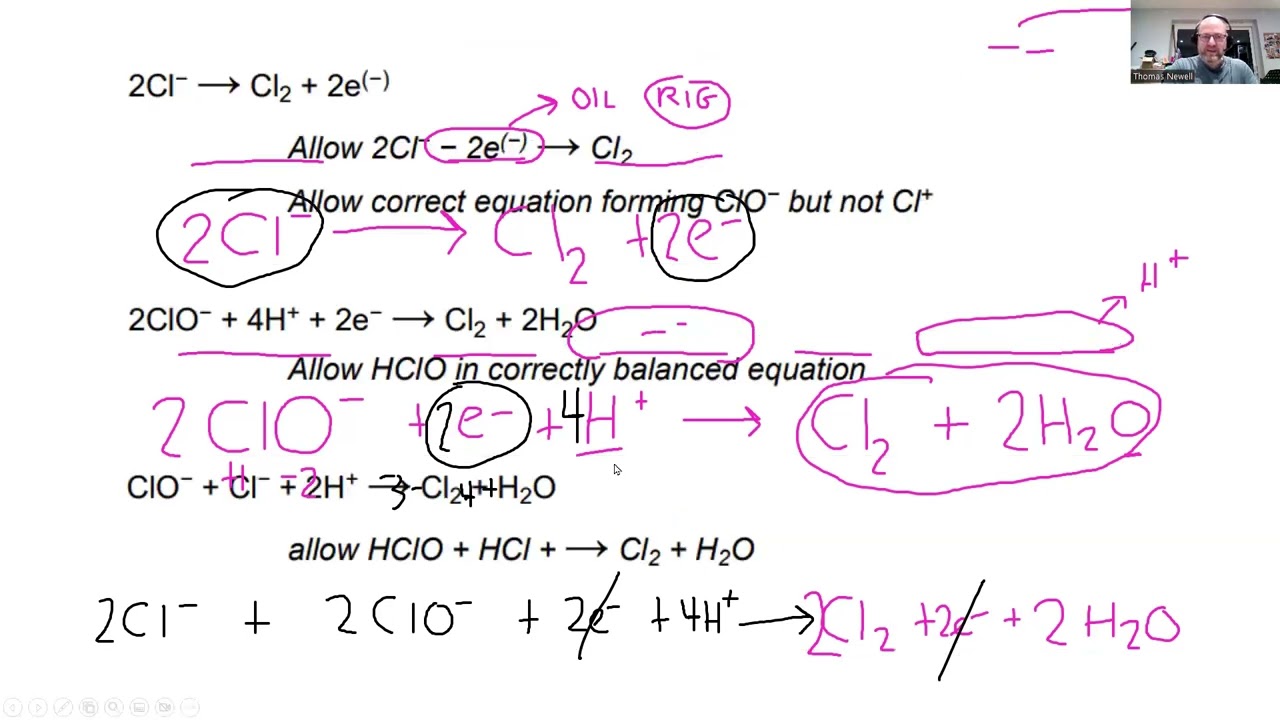 Thomas Newell
2Cl⁻ → Cl₂ + 2e⁽⁻⁾
OIL RIG
Allow 2Cl⁻ – 2e⁽⁻⁾ → Cl₂
Allow correct equation forming ClO⁻ but not Cl⁺
2Cl⁻ → Cl₂ + 2e⁻
H⁺
2ClO⁻ + 4H⁺ + 2e⁻ → Cl₂ + 2H₂O
Allow HClO in correctly balanced equation
2ClO⁻ + 2e⁻ + 4H⁺ → Cl₂ + 2H₂O
ClO⁻ + Cl⁻ + 2H⁺ → Cl₂ + H₂O
allow HClO + HCl + → Cl₂ + H₂O
2Cl⁻ + 2ClO⁻ + 2e⁻ + 4H⁺ → 2Cl₂ + 2e⁻ + 2H₂O